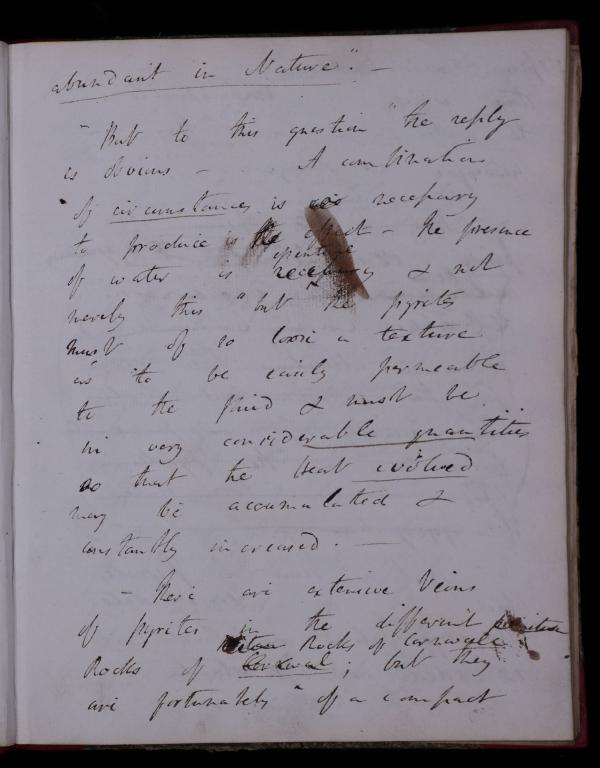 abundant in Nature". —
"But to this question "the reply
is obvious — A combination
of circumstances is necessary
to produce the effect — The presence
of water is necessary & not
merely this "but the pyrites
must of so loose a texture
as to be easily permeable
to the fluid & must be
in very considerable quantities
so that the heat evolved
may be accumulated &
constantly increased. —
— There are extensive Veins
of pyrites in the different
Rocks of Cornwall
Rocks of Cornwall; but they
are fortunately " of a compact